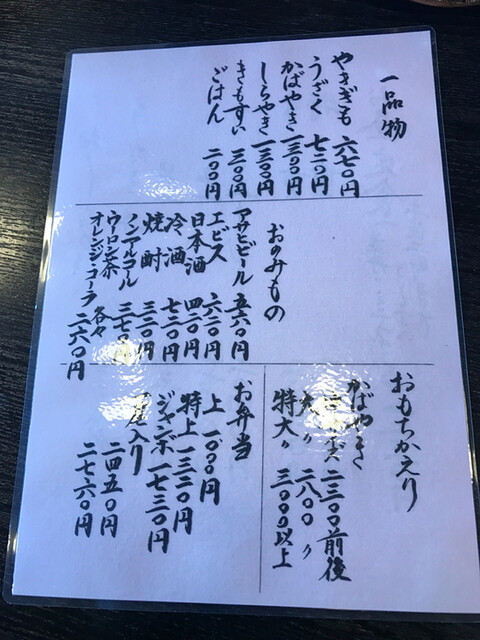 一品物
やきぎも 六七〇円
うざく 七二〇円
かばやき 一三〇〇円
しらやき 一三〇〇円
きもすい 三〇〇円
ごはん 二〇〇円
おのみもの
アサヒビール 五六〇円
エビス 六二〇円
日本酒 四二〇円
冷酒 七二〇円
焼酎 三二〇円
ノンアルコール 三七〇円
ウーロン茶
オレンジ・コーラ 各々二六〇円
おもちかえり
かばやき
二三〇〇前後
大〃 二八〇〇〃
特大〃 三〇〇〇以上
お弁当
上 一〇〇〇円
特上 一三二〇円
ジャンボ 一七三〇円
入り
二四五〇円
二七六〇円